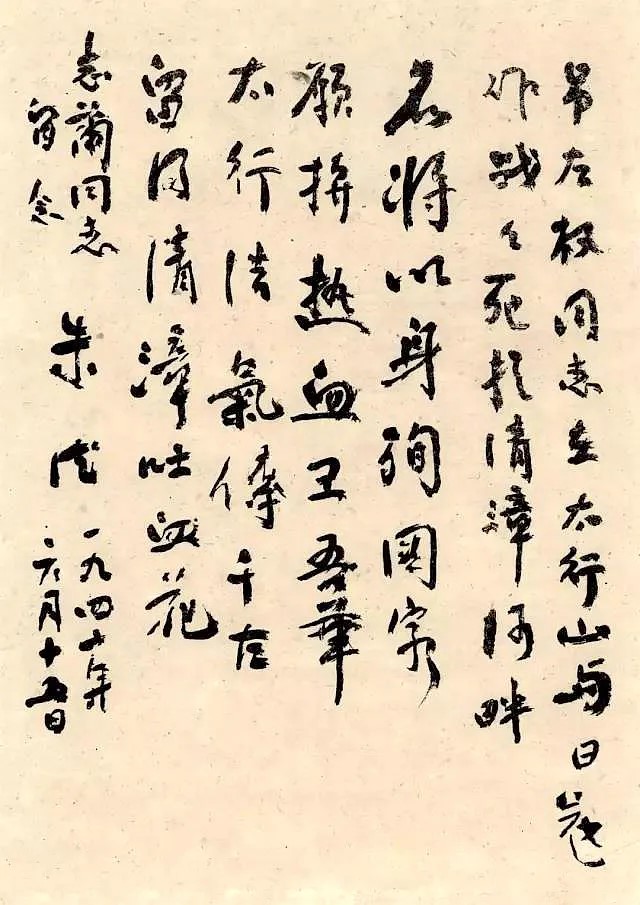 吊左权同志在太行山与日寇
作战々死於清漳河畔
名将以身殉國家
願拚热血卫吾華
太行浩氣傳千古
留得清漳吐血花
志蘭同志
留念
朱德
一九四年
六月十五日